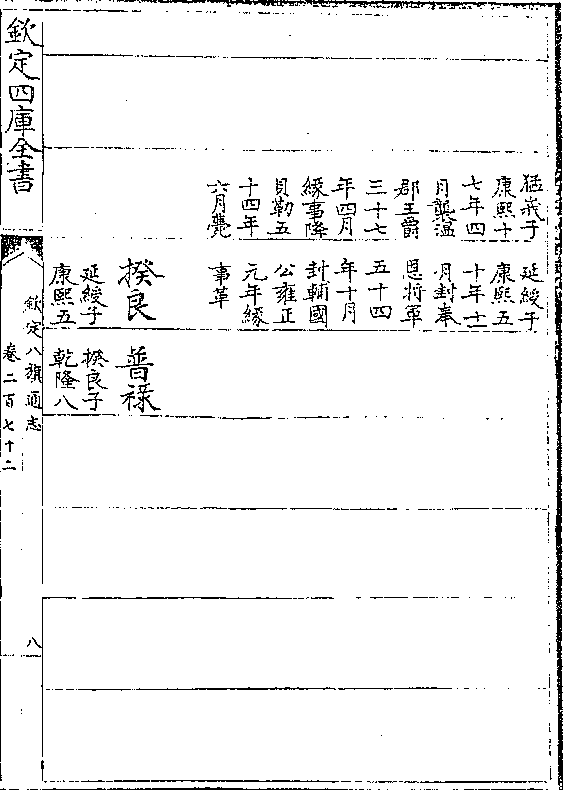 猛峩子
康熙十
七年四
月襲溫
郡王爵
三十七
年四月
緣事降
貝勒五
十四年
六月薨
延綬子
康熙五
十年十二
月封奉
恩將軍
五十四
年十月
封輔國
公雍正
元年緣
事革
揆良
延綬子
康熙五
普祿
揆良子
乾隆八
欽定四庫全書
欽定八旗通志
卷二百七十二
八